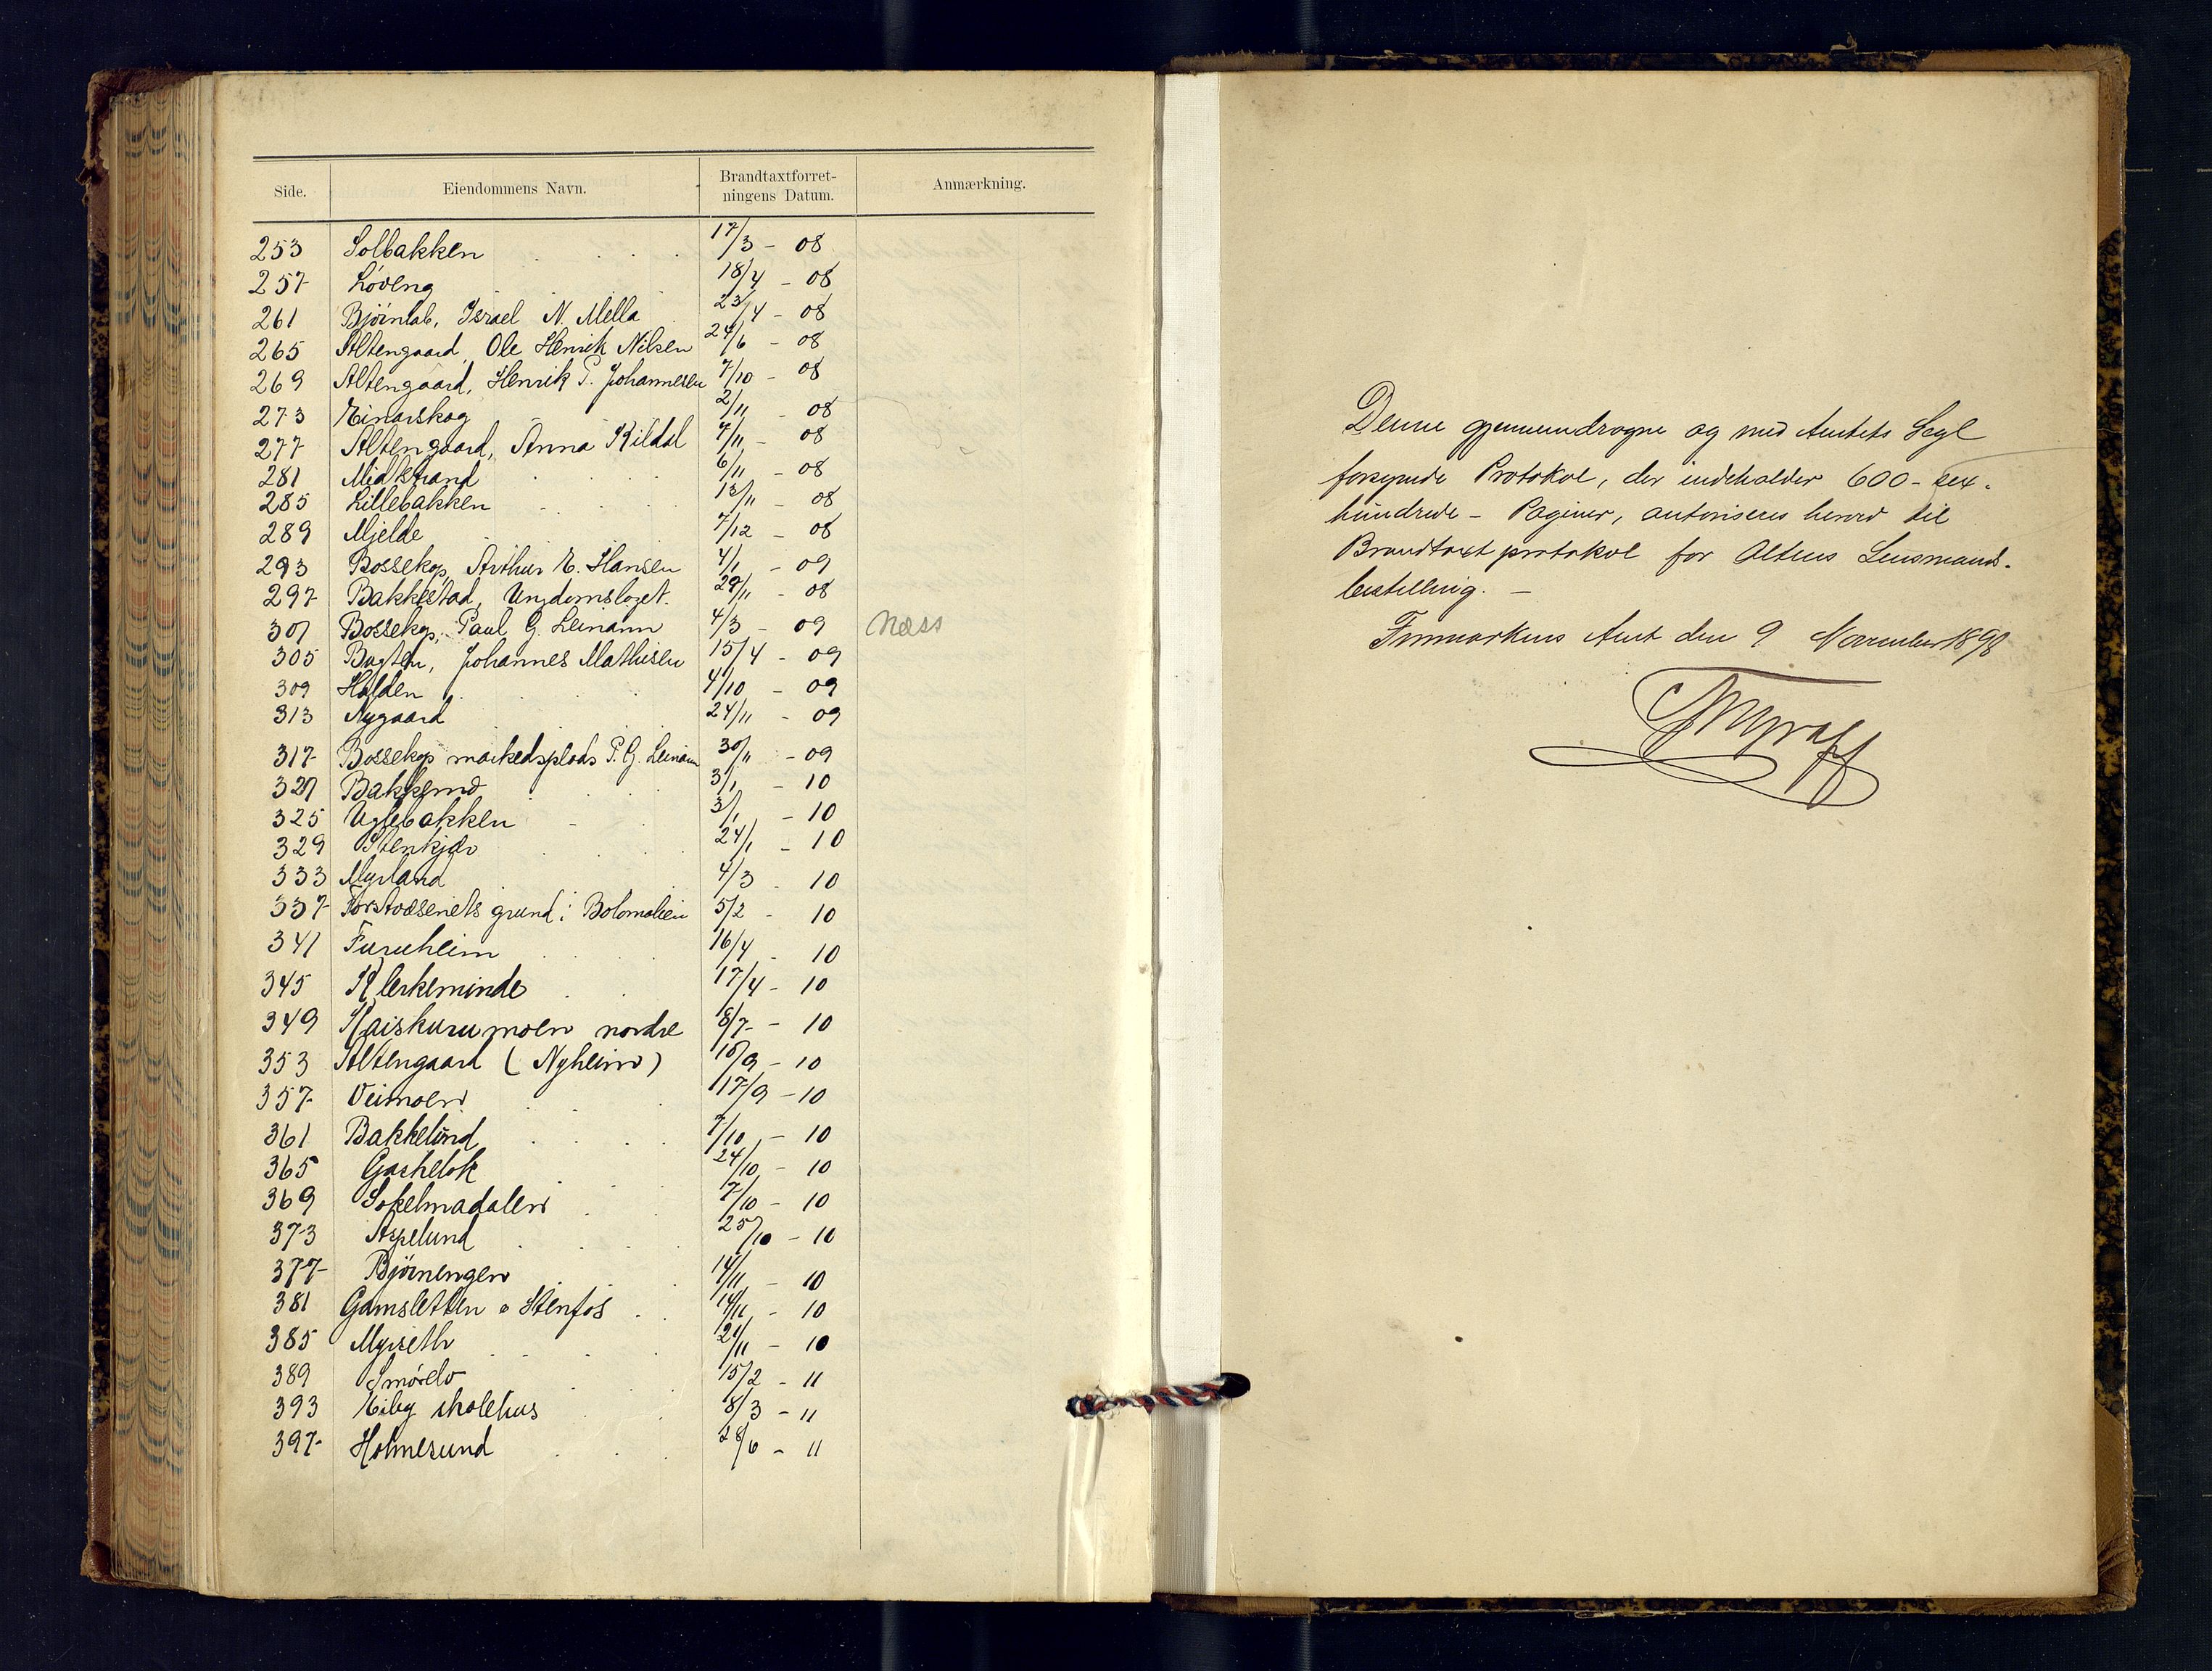 Side. Eiendommens Navn. Brandtaxtforret-ningens Datum. Anmærkning.
253 Solbakken 17/3 - 08
257 Løveng 18/4 - 08
261 Bjørnlab, Israel N. Mella 23/4 - 08
265 Altengaard, Ole Henrik Nilsen 24/6 - 08
269 Altengaard, Henrik P. Johannesen 7/10 - 08
273 Einarskog 2/11 - 08
277 Altengaard, Anna Kildal 7/11 - 08
281 Midtstrand 6/11 - 08
285 Lillebakken 13/11 - 08
289 Mjelde 7/12 - 08
293 Bossekop, Arthur E. Hansen 4/1 - 09
297 Bakkestad, Ungdomslaget. 29/11 - 08
301 Bossekop, Paul G. Leinann 4/3 - 09 Næss
305 Bugten, Johannes Mathisen 15/4 - 09
309 Halden 4/10 - 09
313 Nygaard 24/11 - 09
317 Bossekop markedsplads P. G. Leinann 30/11 - 09
321 Bakkemo 3/1 - 10
325 Uglebakken 3/1 - 10
329 Stenkjær 24/1 - 10
333 Myrland 4/3 - 10
337 Forstvæsenets grund i Bolomolien 5/2 - 10
341 Furuheim 16/4 - 10
345 Klerkeminde 17/4 - 10
349 Kaiskurumoen nordre 8/7 - 10
353 Altengaard (Nyheim) 16/9 - 10
357 Veimoen 17/9 - 10
361 Bakkelund 7/10 - 10
365 Gashelok 24/10 - 10
369 Sokelmadalen 7/10 - 10
373 Aspelund 25/10 - 10
377 Bjørnengen 14/11 - 10
381 Gamsletten o Stenfos 14/11 - 10
385 Myrseth 21/11 - 10
389 Smørelv 15/2 - 11
393 Eiby skolehus 8/3 - 11
397 Holmesund 28/6 - 11
Denne gjennemdragne og med Amtets Segl
forsynede Protokol, der indeholder 600 - sex-
hundrede - Paginer, autoriseres herved til
Brandtaxtprotokol for Altens Lensmands-
bestilling. -
Finmarkens Amt den 9 November 1898